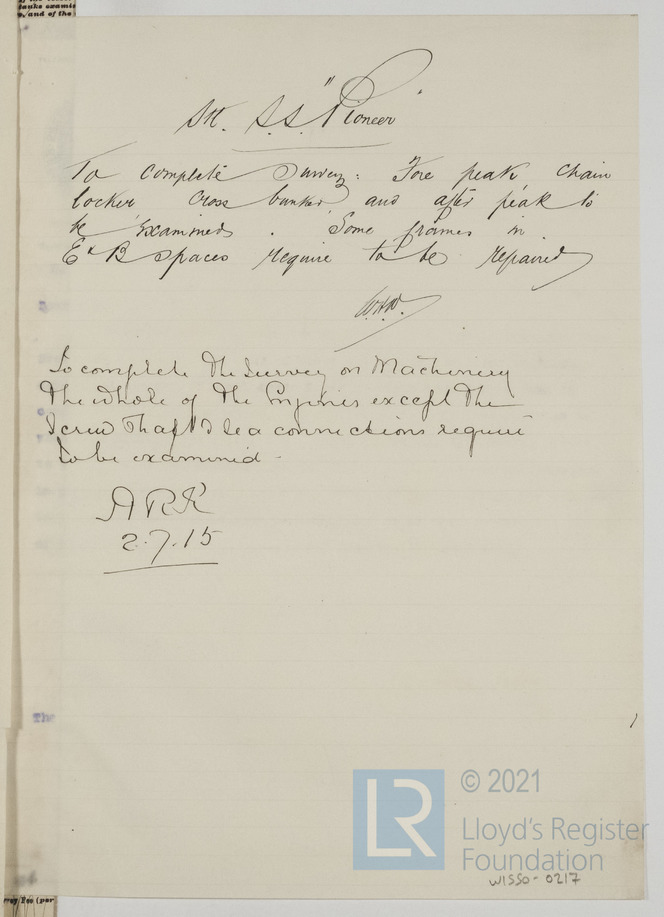 St. S.S. "Pioneer"
To complete Survey: Fore peak chain
locker cross bunker and after peak to
be Examined. Some frames in
E & B spaces require to be repaired
To complete the Survey on Machinery
the whole of the Engines except the
Screw Shaft & Sea connections require
to be examined -
ARK
2.7.15
The
© 2021
LR
Lloyd's Register
Foundation
W1550-0217